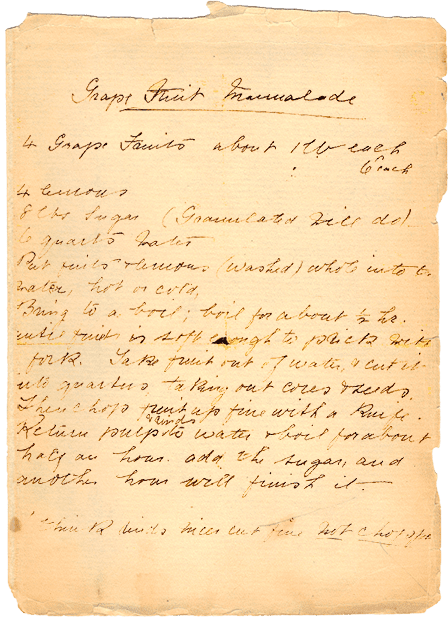 Grape Fruit Marmalade
4 Grape Fruits about 1 lb each
6c each
4 lemons
8 lbs Sugar (Granulated will do)
6 quarts Water
Put fruits & lemons (washed) whole into
water, hot or cold,
Bring to a boil; boil for about
until fruit is soft enough to prick with
fork. Take fruit out of water, & cut it
into quarters taking out cores & seeds.
Then chop fruit up fine with a knife
& rinds
Return pulp to water & boil for about
half an hour. add the sugar, and
another hour will finish it.
I think rinds nicer cut fine not chopped